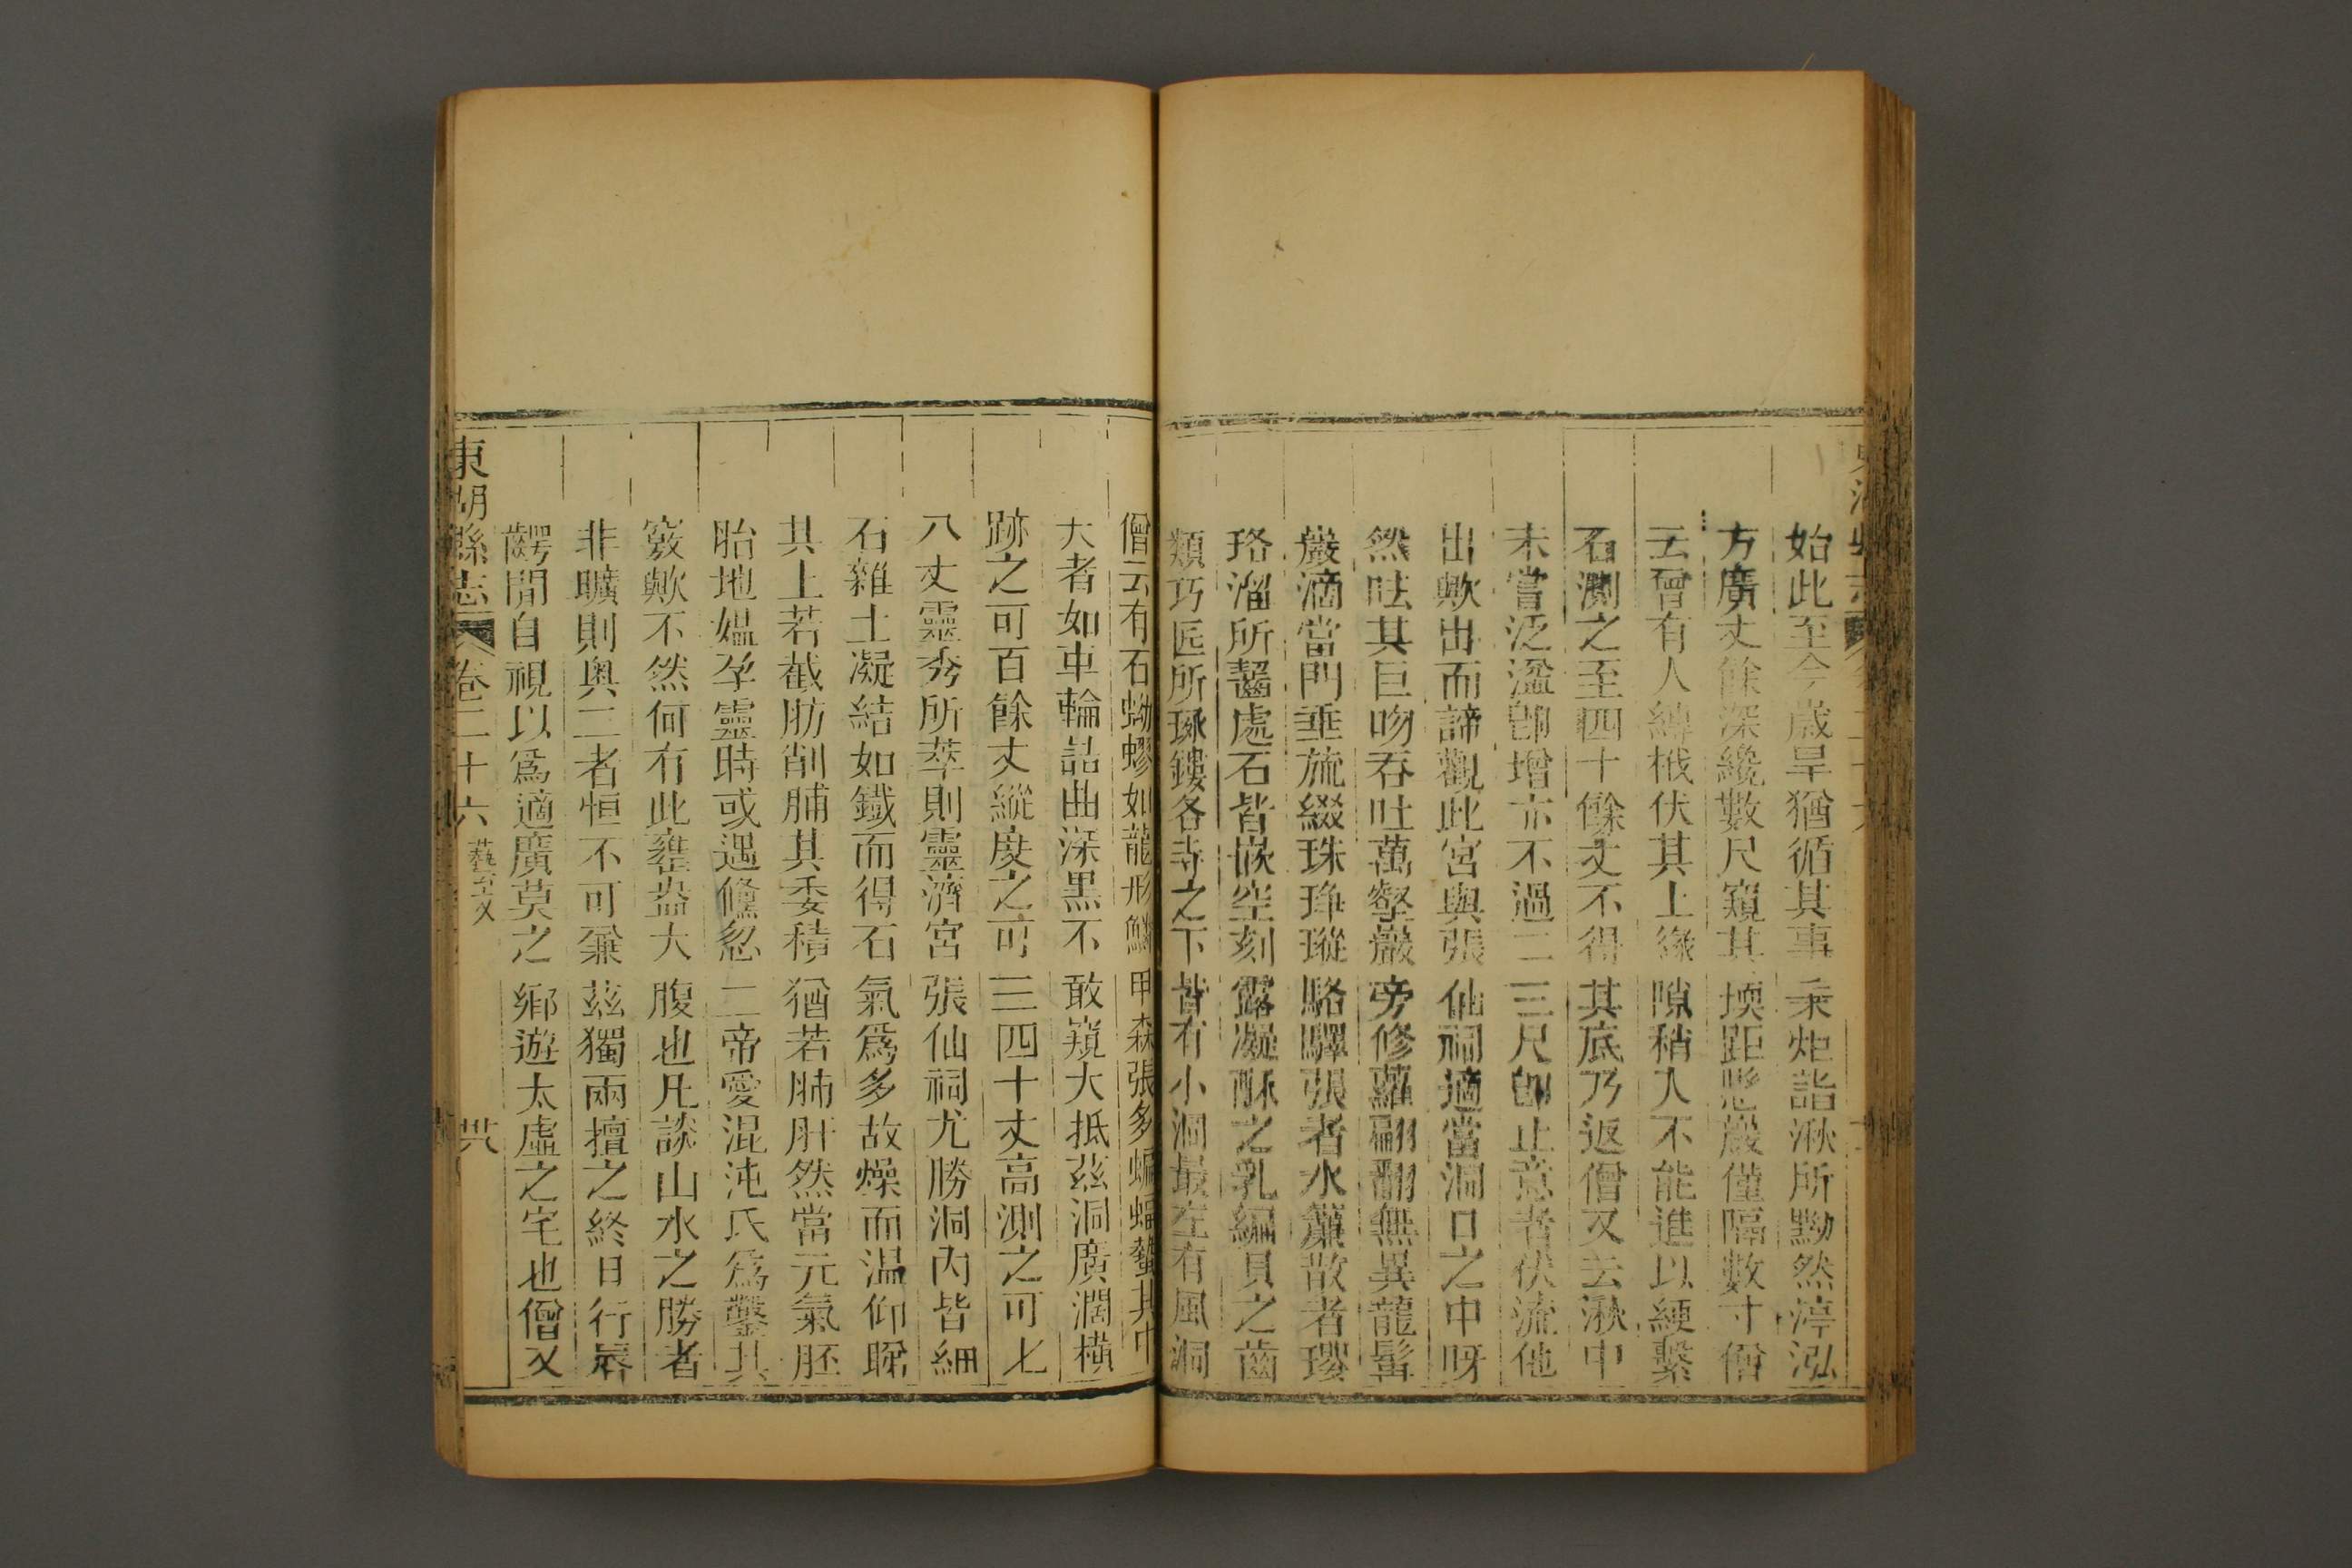 始此至今歲旱猶循其事秉炬詣湫所黝然渟泓
方廣丈餘深纔數尺窺其堧距懸巖僅隔數寸僧
云曾有人縛栰伏其上緣隙稍入不能進以綆繫
石測之至四十餘丈不得其底乃返僧又云湫中
未嘗泛溢卽增亦不過二三尺卽止意者伏流他
出歟出而諦觀此宮與張仙祠適當洞口之中呀
然呿其巨吻吞吐萬壑巖旁修蘿翩翻無異龍髯
巖滴當門垂旒綴珠琤瑽駱驛張者水簾散者瓔
珞溜所齧處石皆嵌空刻露凝酥之乳編貝之齒
類巧匠所琢鏤各寺之下皆有小洞最左有風洞
僧云有石蚴蟉如龍形鱗甲森張多蝙蝠蟄其中
大者如車輪詰曲深黑不敢窺大抵茲洞廣濶橫
跡之可百餘丈縱度之可三四十丈高測之可七
八丈靈秀所萃則靈濟宮張仙祠尤勝洞內皆細
石雜土凝結如鐵而得石氣爲多故燥而温仰睇
其上若截肪削脯其委積猶若肺肝然當元氣胚
胎地媪孕靈時或遇儵忽二帝愛混沌氏爲鑿其
竅歟不然何有此壅盎大腹也凡談山水之勝者
非曠則奧二者恒不可兼茲獨兩擅之終日行脣
齶間自視以爲適廣莫之鄉遊太虛之宅也僧又
東湖縣志 卷二十六 藝文 廿八